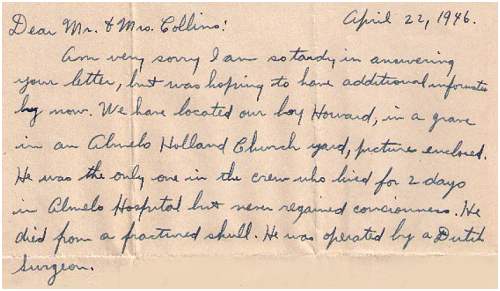 Dear Mr. & Mrs. Collins: April 22, 1946.
Am very sorry I am so tardy in answering
your letter, but was hoping to have additional informatio
by now. We have located our boy Howard, in a grave
in an Almelo Holland Church yard, picture enclosed.
He was the only one in the crew who lived for 2 days
in Almelo Hospital but never regained conciounness. He
died from a fractured skull. He was operated by a Dutch
Surgeon.